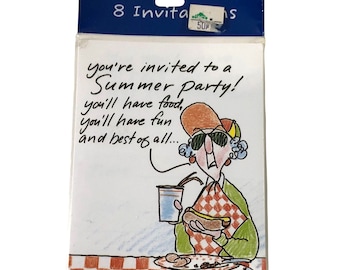 8 Invitations
50¢
you're invited to a
Summer party!
you'll have food,
you'll have fun
and best of all...